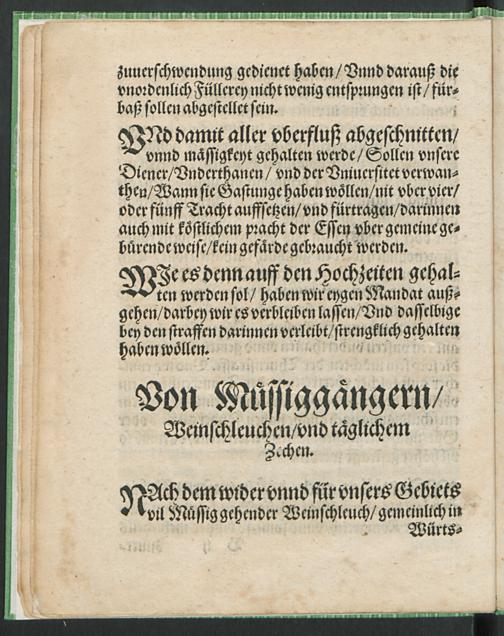 zuuerschwendung gedienet haben/ Vnnd darauß die
vnordenlich Füllerey nicht wenig entsprungen ist/ für-
baß sollen abgestellet sein.
VNd damit aller vberfluß abgeschnitten/
vnnd mässigkeyt gehalten werde/ Sollen vnsere
Diener/ Vnderthanen/ vnd der Vniuersitet verwan-
then/ Wann sie Gastunge haben wöllen/ nit vber vier/
oder fünff Tracht auffsetzen/ vnd fürtragen/ darinnen
auch mit köstlichem pracht der Essen vber gemeine ge-
bürende weise/ kein gefärde gebraucht werden.
WIe es denn auff den Hochzeiten gehal-
ten werden sol/ haben wir eygen Mandat auß-
gehen/ darbey wir es verbleiben lassen/ Vnd dasselbige
bey den straffen darinnen verleibt/ strengklich gehalten
haben wöllen.
Von Müssiggängern/
Weinschleuchen/ vnd täglichem
Zechen.
NAch dem wider vnnd für vnsers Gebiets
vil Müssig gehender Weinschleuch/ gemeinlich in
Würts-